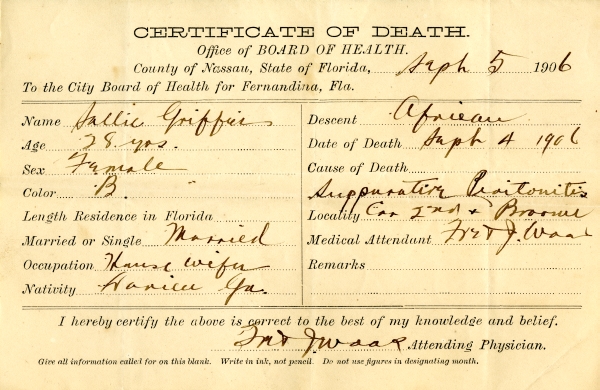 CERTIFICATE OF DEATH.
Office of BOARD OF HEALTH.
County of Nassau, State of Florida, Sept 5 1906
To the City Board of Health for Fernandina, Fla.
Name Sallie Griffin
Age 28 yrs.
Sex Female
Color B.
Length Residence in Florida "
Married or Single Married
Occupation House Wife
Nativity Darien Ga.
Descent African
Date of Death Sept 4 1906
Cause of Death
Suppurative Peritonitis
Locality Cor 2nd + Broome
Medical Attendant J. Waas
Remarks
I hereby certify the above is correct to the best of my knowledge and belief.
J. Waas Attending Physician.
Give all information called for on this blank. Write in ink, not pencil. Do not use figures in designating month.